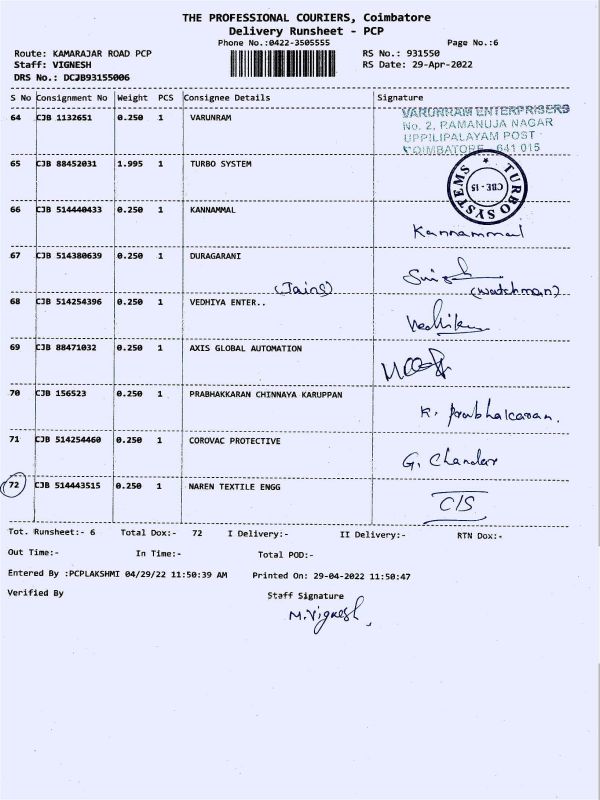 THE PROFESSIONAL COURIERS, Coimbatore
Delivery Runsheet - PCP
Phone No.:0422-3505555 Page No.:6
Route: KAMARAJAR ROAD PCP RS No.: 931550
Staff: VIGNESH RS Date: 29-Apr-2022
DRS No.: DCJB93155006
S No Consignment No Weight PCS Consignee Details Signature
64 CJB 1132651 0.250 1 VARUNRAM
VARUNRAM ENTERPRISERS
No. 2, RAMANUJA NAGAR
UPPILIPALAYAM POST
COIMBATORE 641 015
65 CJB 88452031 1.995 1 TURBO SYSTEM
TURBO SYSTEMS
CBE - 15
66 CJB 514440433 0.250 1 KANNAMMAL
Kannammal
67 CJB 514380639 0.250 1 DURAGARANI
(Jains) (watchman)
68 CJB 514254396 0.250 1 VEDHIYA ENTER..
69 CJB 88471032 0.250 1 AXIS GLOBAL AUTOMATION
70 CJB 156523 0.250 1 PRABHAKKARAN CHINNAYA KARUPPAN
K. Prabhakaran.
71 CJB 514254460 0.250 1 COROVAC PROTECTIVE
G. Chander
72 CJB 514443515 0.250 1 NAREN TEXTILE ENGG
C/S
Tot. Runsheet:- 6 Total Dox:- 72 I Delivery:- II Delivery:- RTN Dox:-
Out Time:- In Time:- Total POD:-
Entered By :PCPLAKSHMI 04/29/22 11:50:39 AM Printed On: 29-04-2022 11:50:47
Verified By Staff Signature
M.Vignesh